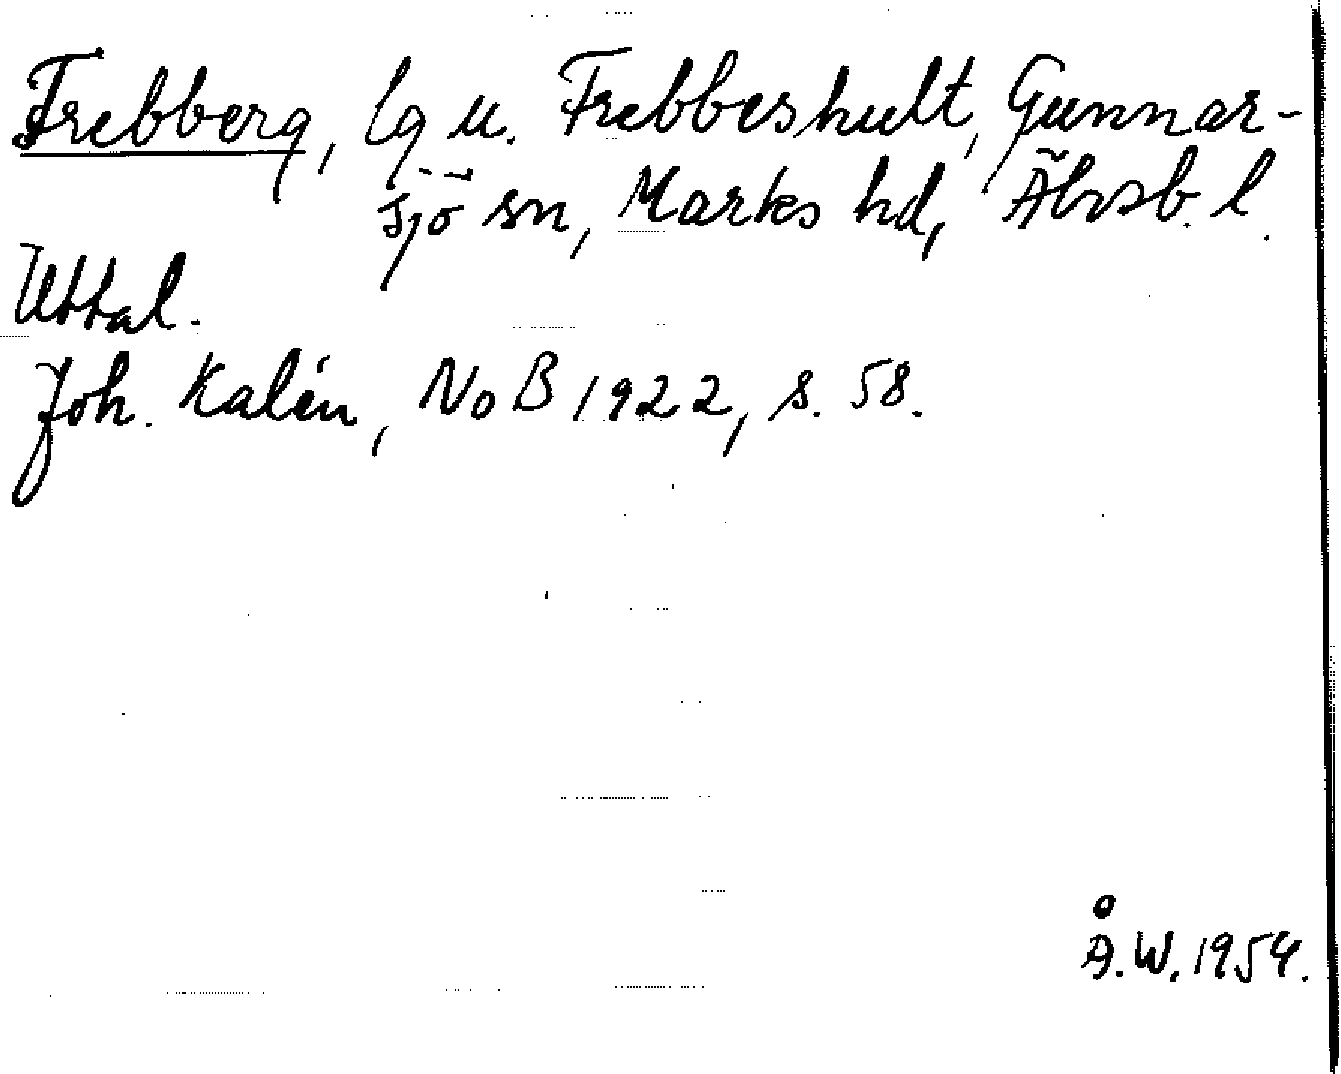 Frebberg, lg u. Frebbeshult, Gunnar-
sjö sn, Marks hd, Älvsb. l.
Uttal.
Joh. Kalén, NoB 1922, s. 58.
Å.W. 1954.